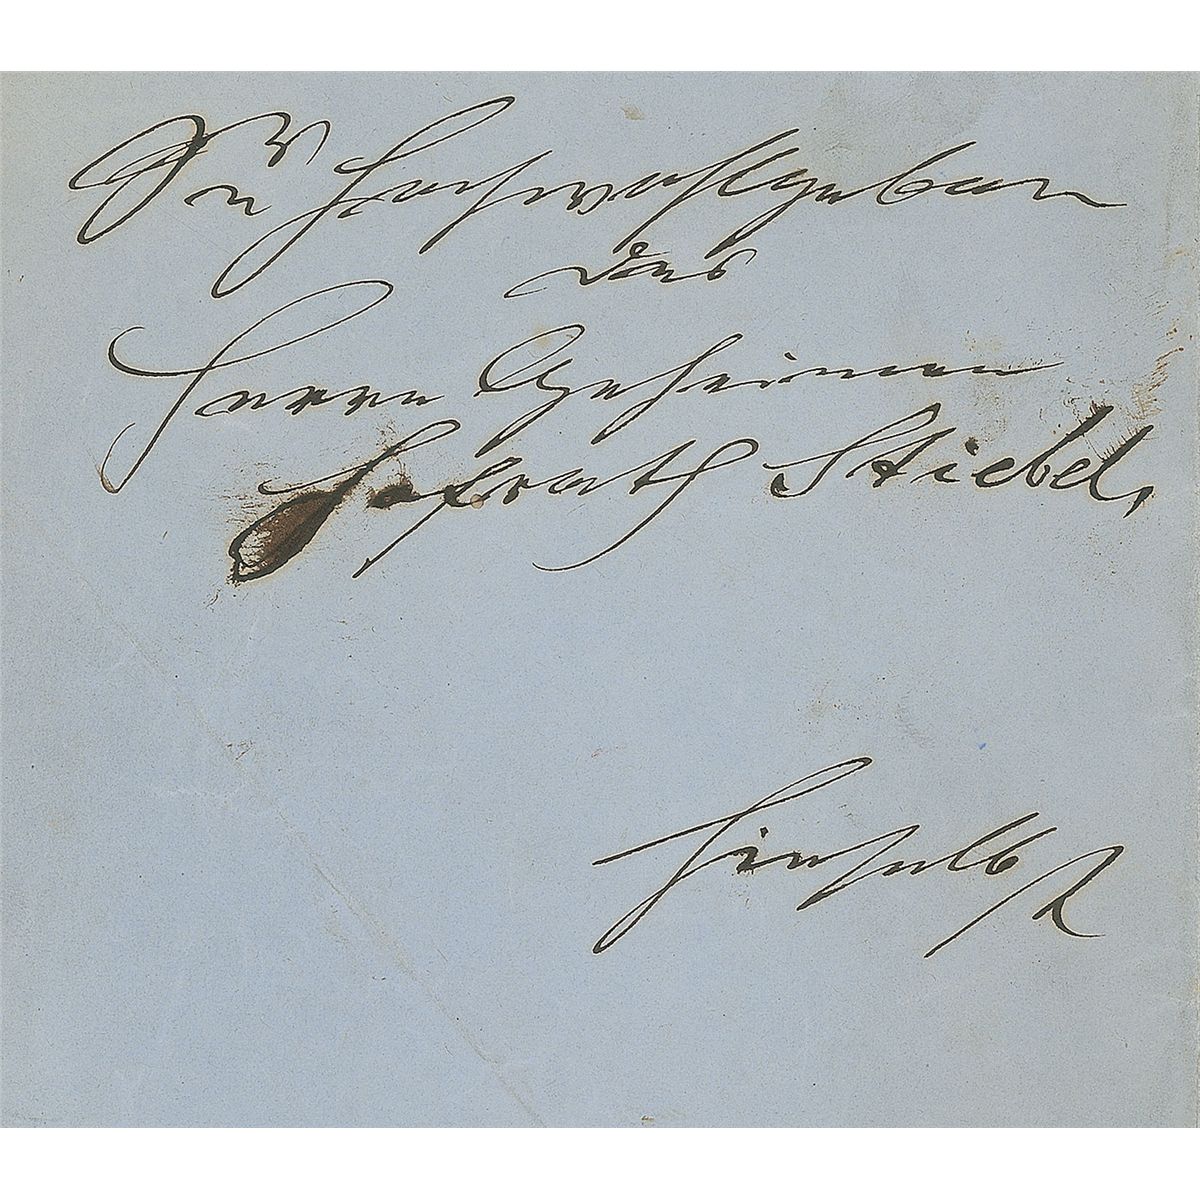 Sr Hochwohlgeboren
des
Herrn Geheimen
Hofrath Stiebel,
hieselbst